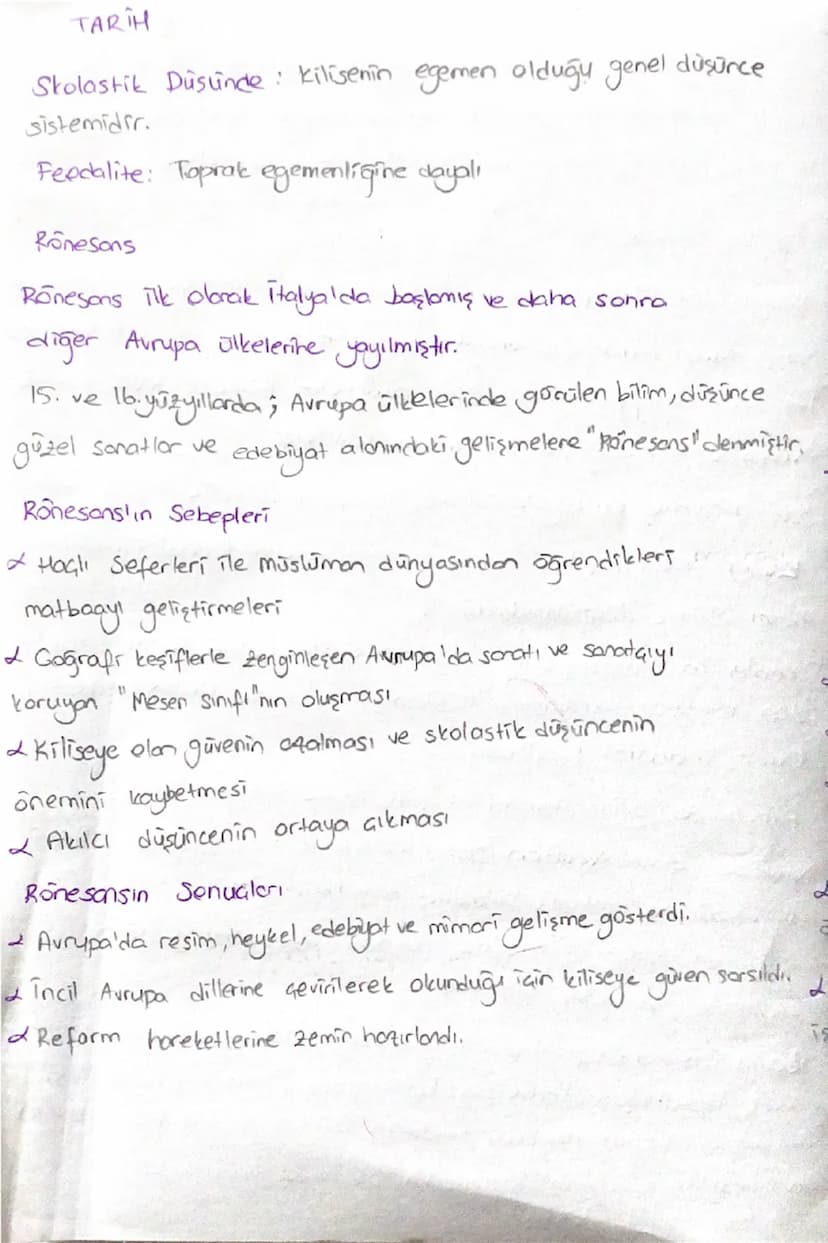 TARİH
Skolastik Düşünce : Kilisenin egemen olduğu genel düşünce
sistemidir.
Feodalite: Toprak egemenliğine dayalı
Rönesans
Rönesans ilk olarak İtalya'da başlamış ve daha sonra
diğer Avrupa ülkelerine yayılmıştır.
15. ve 16. yüzyıllarda ; Avrupa ülkelerinde görülen bilim, düşünce
güzel sanatlar ve edebiyat alanındaki gelişmelere "Rönesans" denmiştir.
Rönesans'ın Sebepleri
α Haçlı Seferleri ile müslüman dünyasından öğrendikleri
matbaayı geliştirmeleri
α Coğrafi keşiflerle zenginleşen Avrupa'da sanatı ve sanatçıyı
koruyan "Mesen sınıfı"nın oluşması
α Kiliseye olan güvenin azalması ve skolastik düşüncenin
önemini kaybetmesi
α Akılcı düşüncenin ortaya çıkması
Rönesansın Sonuçları
α Avrupa'da resim, heykel, edebiyat ve mimari gelişme gösterdi.
α İncil Avrupa dillerine çevirilerek okunduğu için kiliseye güven sarsıldı.
α Reform hareketlerine zemin hazırlandı.